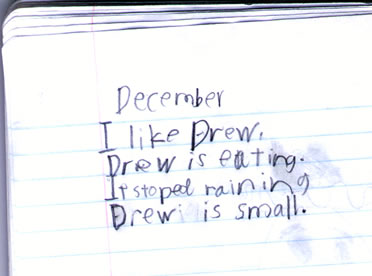 December
I like Drew.
Drew is eating.
It stoped raining
Drew is small.